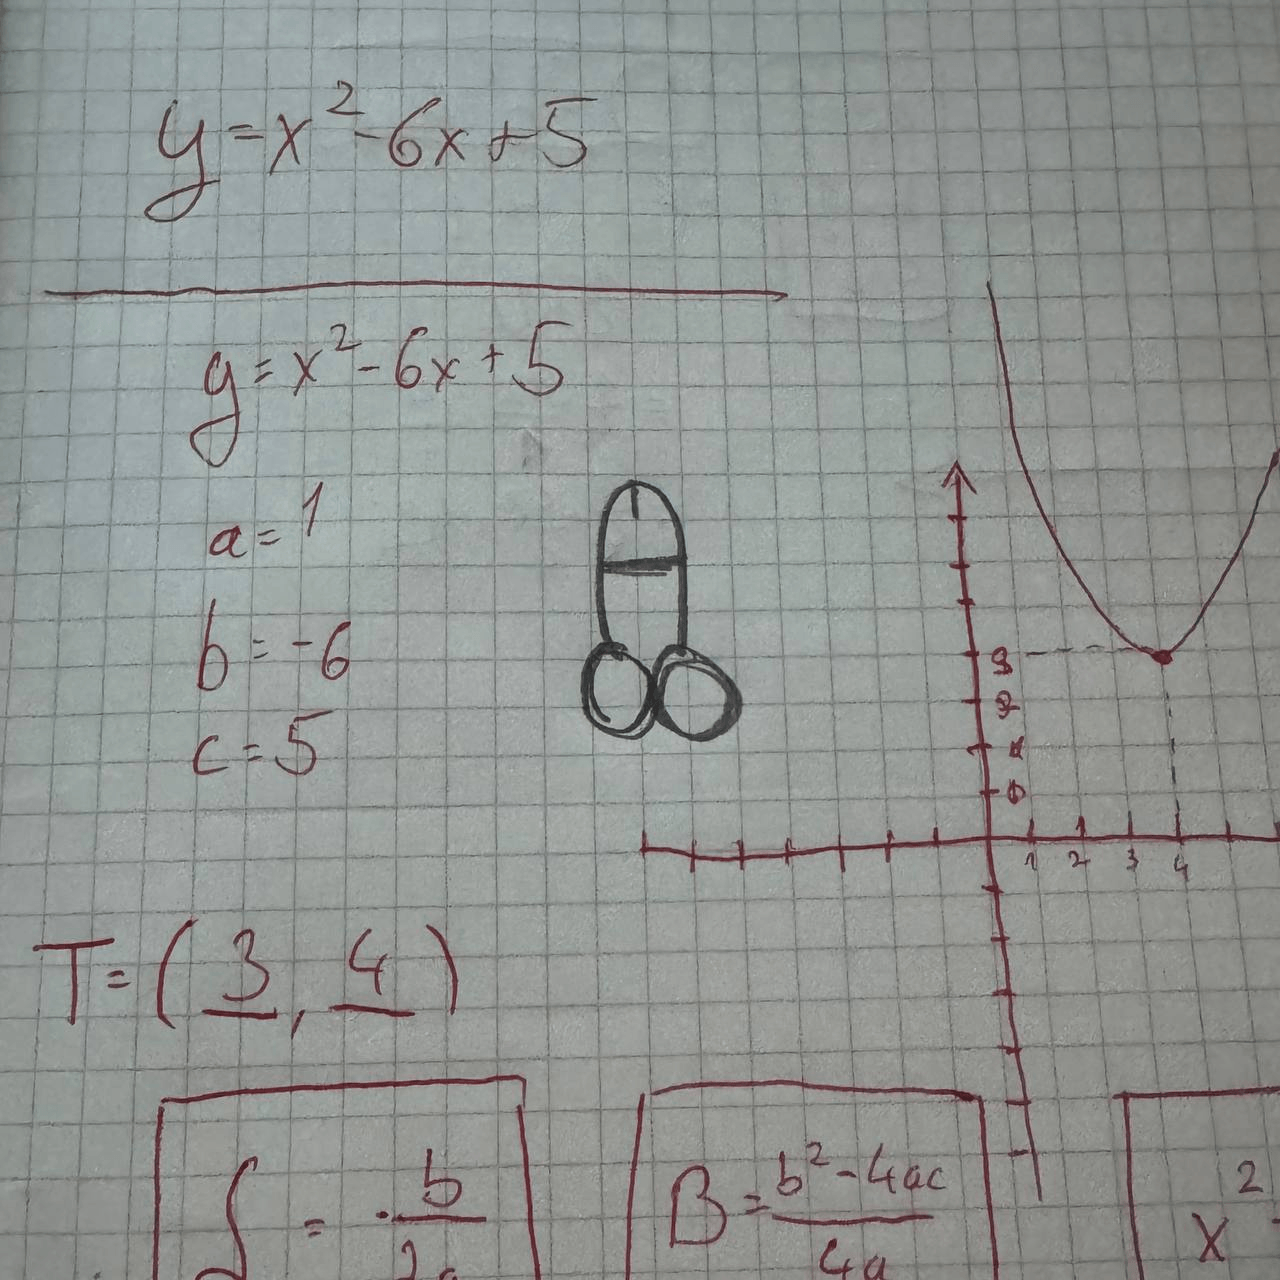 y=x²-6x+5
y=x²-6x+5
a=1
b=-6
c=5
3
2
1
0
1 2 3 4
T=(3, 4)
= -b/2a
B=b²-4ac/4a
x²